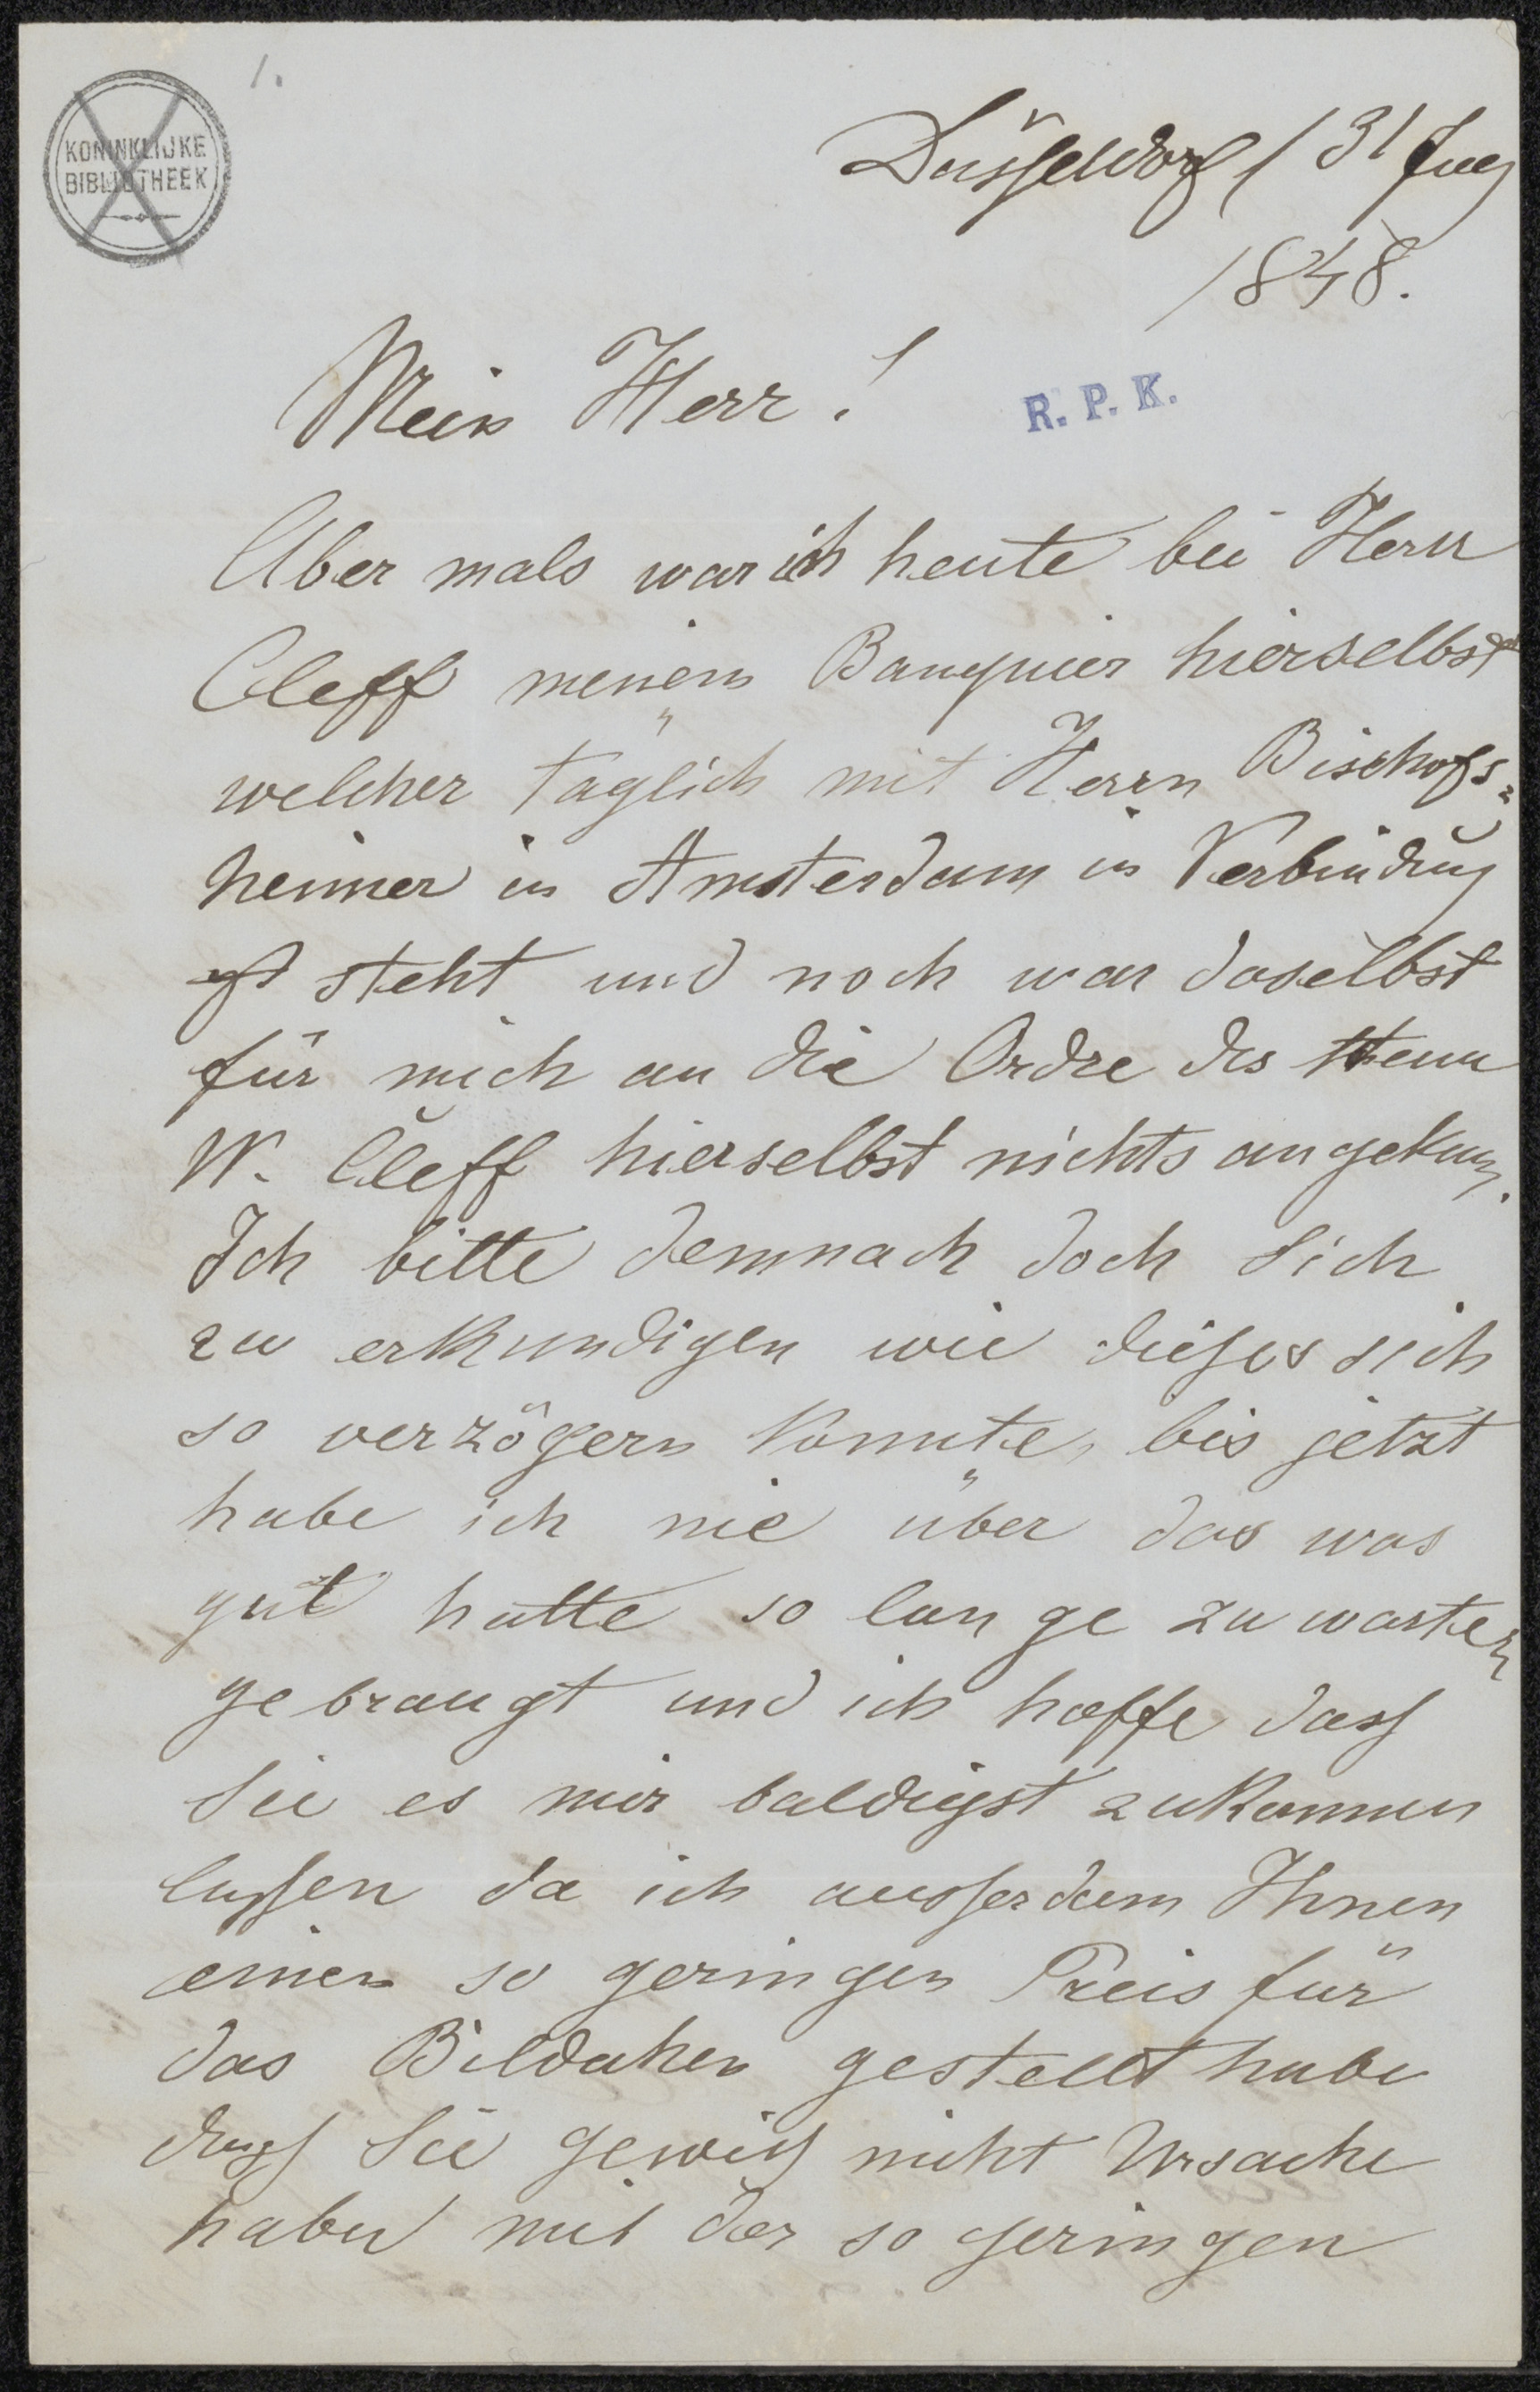 1.
KONINKLIJKE
BIBLIOTHEEK
Düsseldorf / 31 Aug
1848.
Mein Herr!
R. P. K.
Aber mals war ich heute bei Herrn
Cleff meinem Banquier hierselbst
welcher täglich mit Herrn Bischofs=
heimer in Amsterdam in Verbindung
steht und noch war daselbst
für mich an die Ordre des Herrn
W. Cleff hierselbst nichts angekom.
Ich bitte demnach doch Sich
zu erkundigen wie dieses sich
so verzögern konnte, bis jetzt
habe ich nie über das was
gut hatte so lange zu warten
gebraugt und ich hoffe dass
Sie es mir baldigst zukommen
lassen da ich ausserdem Ihnen
einen so geringen Preis für
das Bildchen gestellt habe
dass Sie gewiss nicht Ursache
haben mit der so geringen